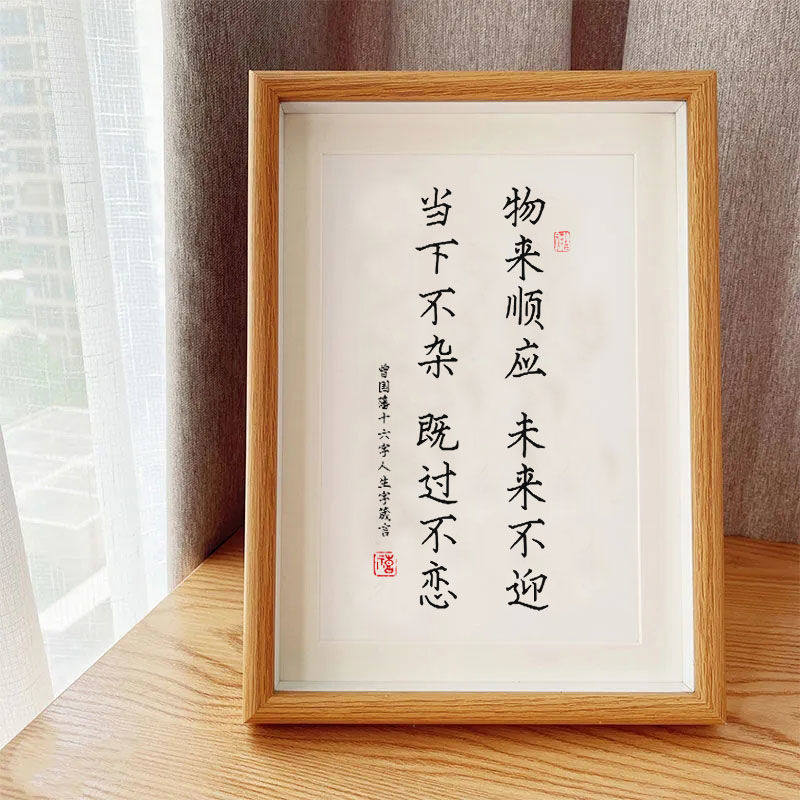 物来顺应 未来不迎
当下不杂 既过不恋
曾国藩十六字人生字箴言